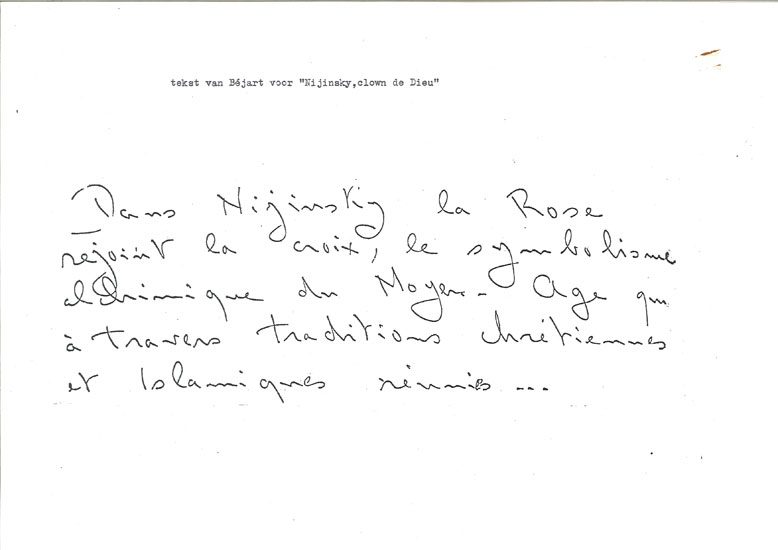 tekst van Béjart voor "Nijinsky,clown de Dieu"
Dans Nijinsky la Rose
rejoint la croix, le symbolisme
alchimique du Moyen-Age qui
à travers traditions chrétiennes
et Islamiques réunies ...